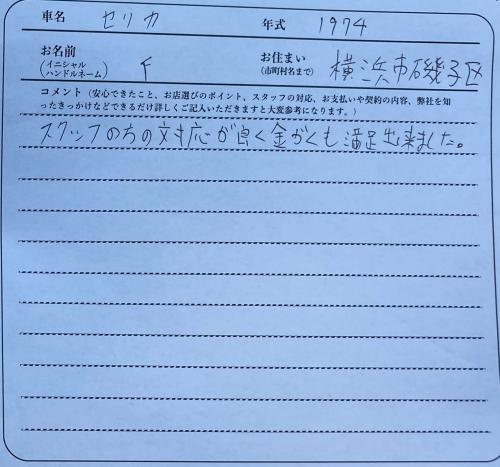 車名 セリカ 年式 1974
お名前 (イニシャル ハンドルネーム) F お住まい (市町村名まで) 横浜市磯子区
コメント (安心できたこと、お店選びのポイント、スタッフの対応、お支払いや契約の内容、弊社を知
ったきっかけなどできるだけ詳しくご記入いただきますと大変参考になります。)
スタッフの方の対応が良く金がくも満足出来ました。